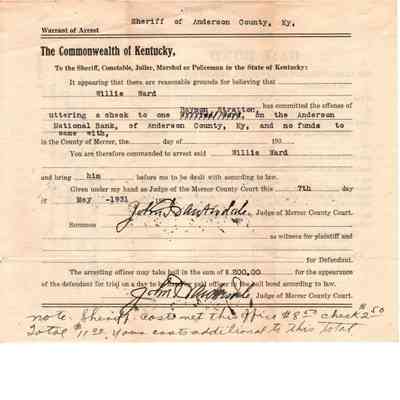 Sheriff of Anderson County, Ky,
Warrant of Arrest
The Commonwealth of Kentucky,
To the Sheriff, Constable, Jailer, Marshal or Policeman in the State of Kentucky:
It appearing that there are reasonable grounds for believing that
Willie Ward
Daymon Stratton, has committed the offense of
uttering a check to one on the Anderson
National Bank, of Anderson County, Ky, and no funds to
same with,
in the County of Mercer, the day of 193
You are therefore commanded to arrest said Willie Ward
and bring him before me to be dealt with according to law.
Given under my hand as Judge of the Mercer County Court this 7th day
of May -1931
Judge of Mercer County Court.
Summon
as witness for plaintiff and
for Defendant.
The arresting officer may take bail in the sum of $ 200.00 for the appearance
of the defendant for trial on a day to be said officer in the bail bond according to law.
Judge of Mercer County Court.
note. Sheriff costs met this office $8.50 check $2.50
Total $11.00. Your costs additional to this total